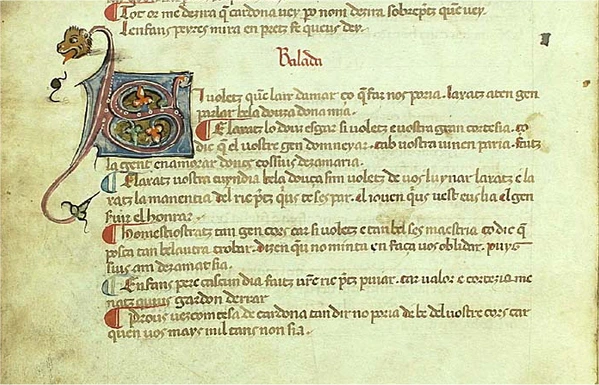 Tot or me dezira q̃ cardona vey po nom dezira sobrep̃tz que vey.
Lenfans peyres mira en pretz se queus dey.
Balada
Si voletz que lair damar ço q̃ far nos poria. laratz aten gen
parlar bela douza dona mia.
Elaratz lo douz esgar si voletz e vostra gran cortesia. ço
dic q̃ el vostre gen domneyar. e ab vostra vinen paria. faitz
la gent enamorar donqs cossius dezamaria.
Elaratz vostra cuyndia bela douça sim voletz de vos luynar laratz e la
ra la manentia del ric p̃tz q̃us te ses par. el ioven q̃us vest eus ha el gen
fuir el honrar.
tan gen cors car si voletz e tan bel ses maestria ço dic q̃
posca tan bel autra trobar. Dizen q̃u no minta en faça vos oblidar. puys
sius am dezamatsia.
Enfans pere cascun dia faitz vr̃e ric p̃tz puiar. car valor e cortezia me
natz gardon derrar
Pros vezcomtesa de cardona tan dir no poria de be del vostre cors car
quen vos mays mil tans non sia.